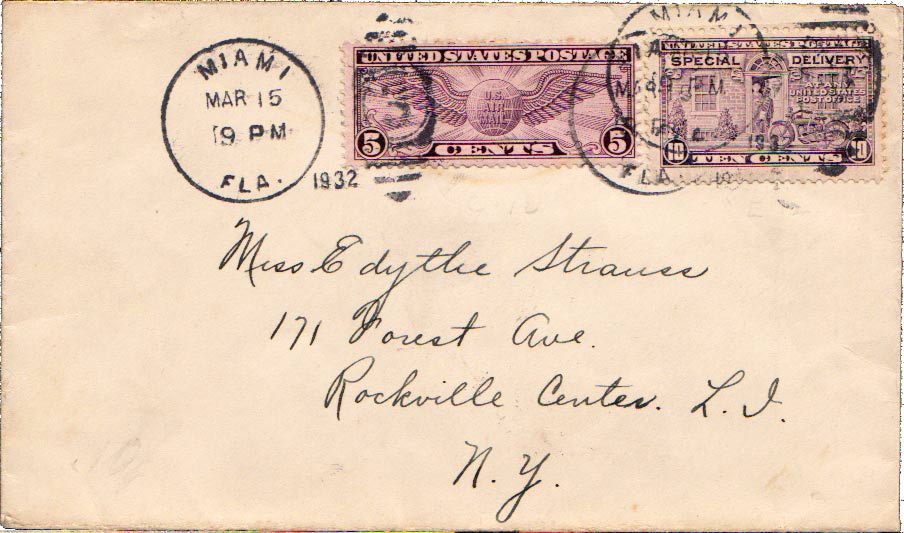 MIAMI
MAR 15
9 PM
FLA.
1932
UNITED STATES POSTAGE
U.S.
AIR
MAIL
5 CENTS 5
MIAMI
FLA.
UNITED STATES POSTAGE
SPECIAL DELIVERY
UNITED STATES
POST OFFICE
10 TEN CENTS 10
Miss Edythe Strauss
171 Forest Ave.
Rockville Center. L. I.
N. Y.